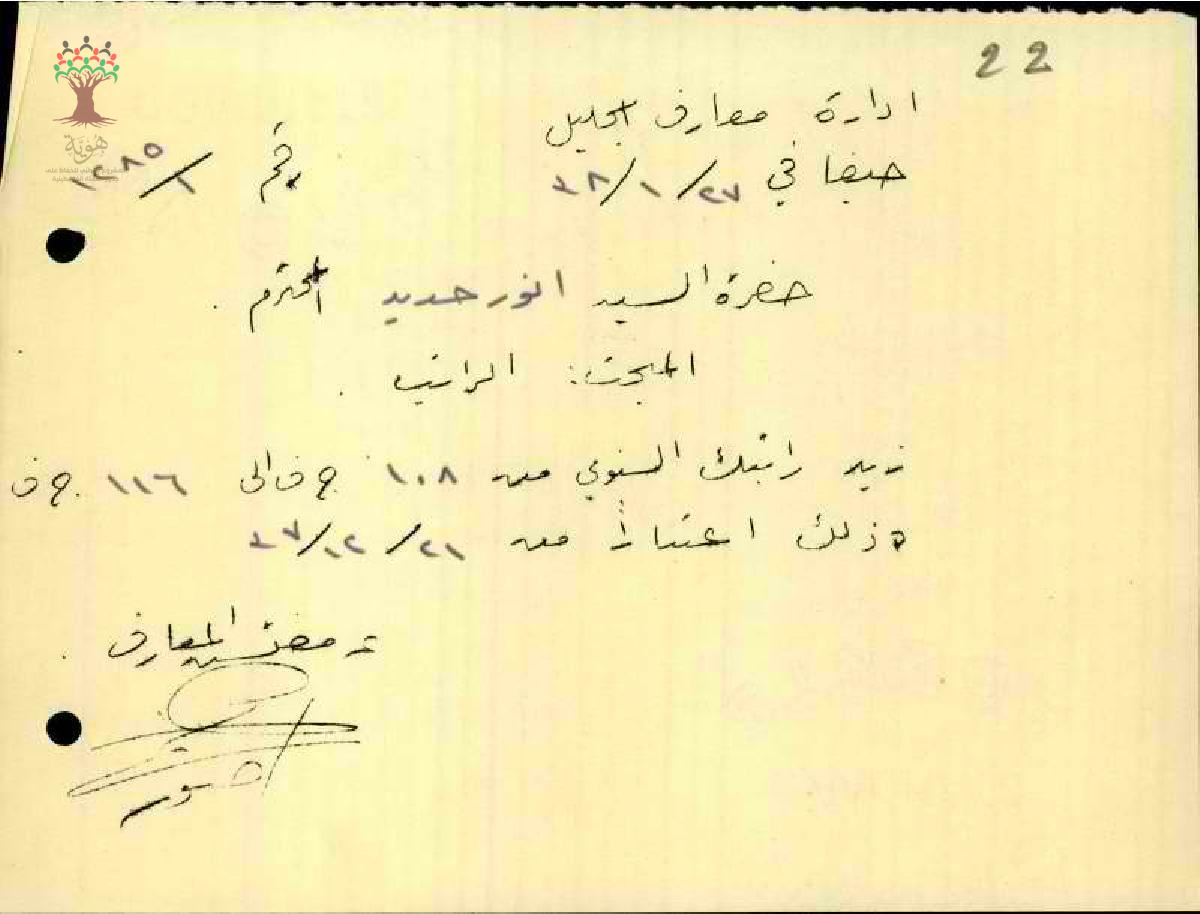 22
ادارة معارف الجليل
حيفا في ٢٧/١/٤٨ رقم ١/١٢٨٥
حضرة السيد انور حديد المحترم .
المبحث: الراتب .
زيد راتبك السنوي من ١٠٨ ج ف الى ١١٦ ج ف
وذلك اعتباراً من ٢١/١٢/٤٧
مفتش المعارف
هُوِيَّة